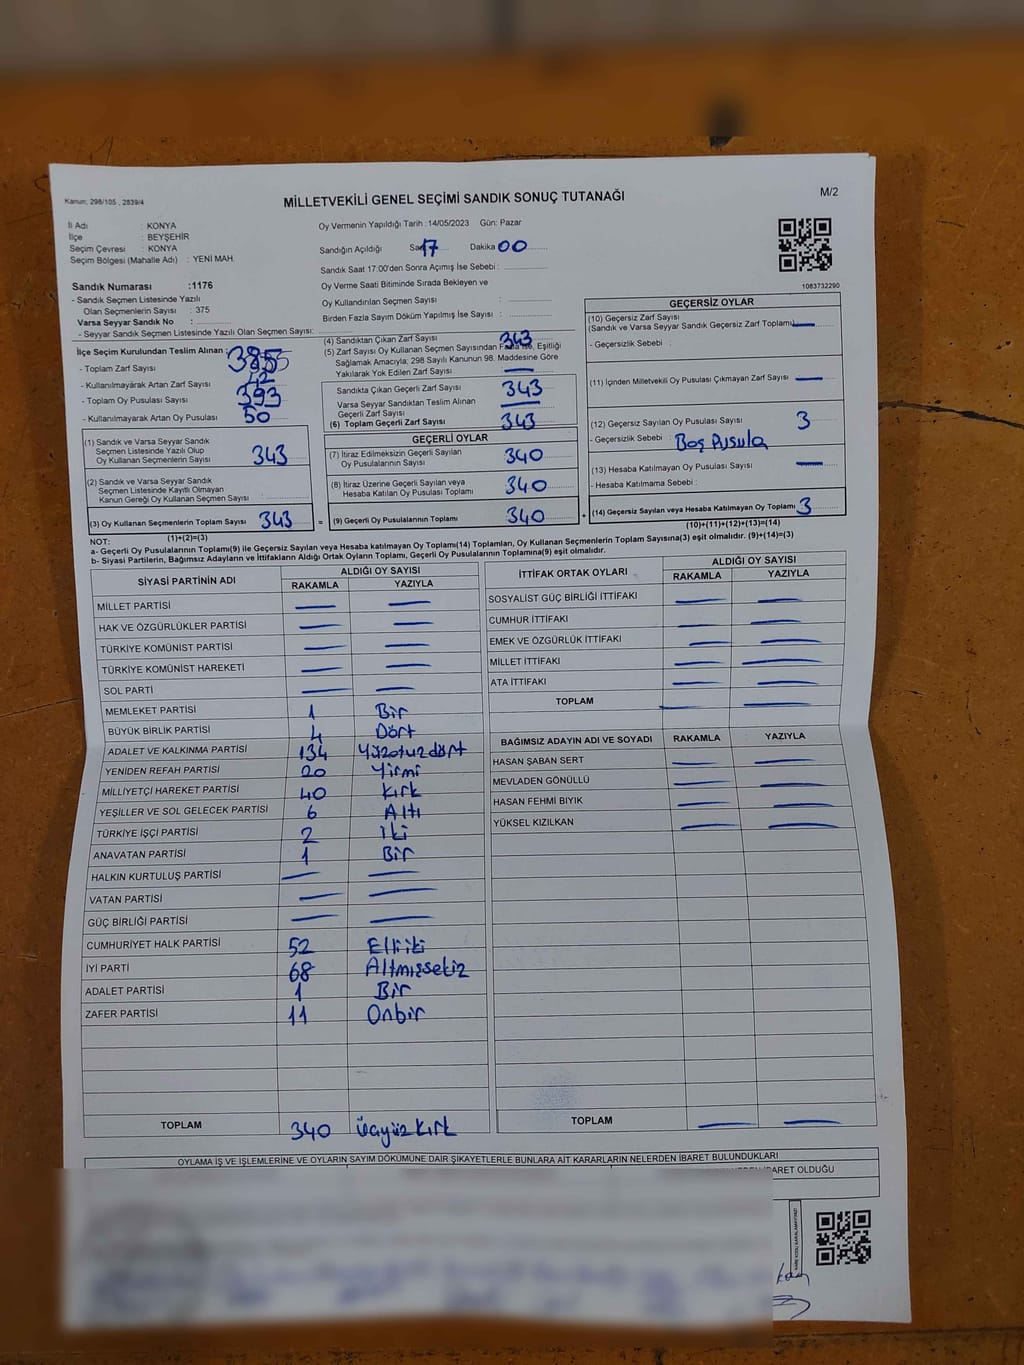 Kanun; 298/105 , 2839/4
MİLLETVEKİLİ GENEL SEÇİMİ SANDIK SONUÇ TUTANAĞI
M/2
İl Adı : KONYA
İlçe : BEYŞEHİR
Seçim Çevresi : KONYA
Seçim Bölgesi (Mahalle Adı) : YENİ MAH.
Oy Vermenin Yapıldığı Tarih :14/05/2023 Gün: Pazar
Sandığın Açıldığı Saat 17 Dakika 00
Sandık Saat 17:00'den Sonra Açılmış İse Sebebi :
Oy Verme Saati Bitiminde Sırada Bekleyen ve
Oy Kullandırılan Seçmen Sayısı :
Birden Fazla Sayım Döküm Yapılmış İse Sayısı :
1083732290
Sandık Numarası :1176
- Sandık Seçmen Listesinde Yazılı
Olan Seçmenlerin Sayısı : 375
Varsa Seyyar Sandık No :
- Seyyar Sandık Seçmen Listesinde Yazılı Olan Seçmen Sayısı:
İlçe Seçim Kurulundan Teslim Alınan :
- Toplam Zarf Sayısı 385
- Kullanılmayarak Artan Zarf Sayısı 42
- Toplam Oy Pusulası Sayısı 393
- Kullanılmayarak Artan Oy Pusulası 50
(1) Sandık ve Varsa Seyyar Sandık
Seçmen Listesinde Yazılı Olup
Oy Kullanan Seçmenlerin Sayısı 343
(2) Sandık ve Varsa Seyyar Sandık
Seçmen Listesinde Kayıtlı Olmayan
Kanun Gereği Oy Kullanan Seçmen Sayısı :
(3) Oy Kullanan Seçmenlerin Toplam Sayısı 343 =
(1)+(2)=(3)
(4) Sandıktan Çıkan Zarf Sayısı 343
(5) Zarf Sayısı Oy Kullanan Seçmen Sayısından Fazla ise, Eşitliği
Sağlamak Amacıyla; 298 Sayılı Kanunun 98. Maddesine Göre
Yakılarak Yok Edilen Zarf Sayısı : —
Sandıkta Çıkan Geçerli Zarf Sayısı 343
Varsa Seyyar Sandıktan Teslim Alınan
Geçerli Zarf Sayısı —
(6) Toplam Geçerli Zarf Sayısı 343
GEÇERLİ OYLAR
(7) İtiraz Edilmeksizin Geçerli Sayılan
Oy Pusulalarının Sayısı 340
(8) İtiraz Üzerine Geçerli Sayılan veya
Hesaba Katılan Oy Pusulası Toplamı 340
(9) Geçerli Oy Pusulalarının Toplamı 340 +
GEÇERSİZ OYLAR
(10) Geçersiz Zarf Sayısı
(Sandık ve Varsa Seyyar Sandık Geçersiz Zarf Toplamı) —
- Geçersizlik Sebebi :
(11) İçinden Milletvekili Oy Pusulası Çıkmayan Zarf Sayısı —
(12) Geçersiz Sayılan Oy Pusulası Sayısı 3
- Geçersizlik Sebebi : Boş Pusula
(13) Hesaba Katılmayan Oy Pusulası Sayısı —
- Hesaba Katılmama Sebebi :
(14) Geçersiz Sayılan veya Hesaba Katılmayan Oy Toplamı 3
(10)+(11)+(12)+(13)=(14)
NOT:
a- Geçerli Oy Pusulalarının Toplamı(9) ile Geçersiz Sayılan veya Hesaba katılmayan Oy Toplamı(14) Toplamları, Oy Kullanan Seçmenlerin Toplam Sayısına(3) eşit olmalıdır. (9)+(14)=(3)
b- Siyasi Partilerin, Bağımsız Adayların ve İttifakların Aldığı Ortak Oyların Toplamı, Geçerli Oy Pusulalarının Toplamına(9) eşit olmalıdır.
SİYASİ PARTİNİN ADI ALDIĞI OY SAYISI
RAKAMLA YAZIYLA
MİLLET PARTİSİ — —
HAK VE ÖZGÜRLÜKLER PARTİSİ — —
TÜRKİYE KOMÜNİST PARTİSİ — —
TÜRKİYE KOMÜNİST HAREKETİ — —
SOL PARTİ — —
MEMLEKET PARTİSİ 1 Bir
BÜYÜK BİRLİK PARTİSİ 4 Dört
ADALET VE KALKINMA PARTİSİ 134 Yüzotuzdört
YENİDEN REFAH PARTİSİ 20 Yirmi
MİLLİYETÇİ HAREKET PARTİSİ 40 Kırk
YEŞİLLER VE SOL GELECEK PARTİSİ 6 Altı
TÜRKİYE İŞÇİ PARTİSİ 2 İki
ANAVATAN PARTİSİ 1 Bir
HALKIN KURTULUŞ PARTİSİ — —
VATAN PARTİSİ — —
GÜÇ BİRLİĞİ PARTİSİ — —
CUMHURİYET HALK PARTİSİ 52 Elliiki
İYİ PARTİ 68 Altmışsekiz
ADALET PARTİSİ 1 Bir
ZAFER PARTİSİ 11 Onbir
TOPLAM 340 Üçyüzkırk
İTTİFAK ORTAK OYLARI ALDIĞI OY SAYISI
RAKAMLA YAZIYLA
SOSYALİST GÜÇ BİRLİĞİ İTTİFAKI — —
CUMHUR İTTİFAKI — —
EMEK VE ÖZGÜRLÜK İTTİFAKI — —
MİLLET İTTİFAKI — —
ATA İTTİFAKI — —
TOPLAM — —
BAĞIMSIZ ADAYIN ADI VE SOYADI RAKAMLA YAZIYLA
HASAN ŞABAN SERT — —
MEVLADEN GÖNÜLLÜ — —
HASAN FEHMİ BIYIK — —
YÜKSEL KIZILKAN — —
TOPLAM — —
OYLAMA İŞ VE İŞLEMLERİNE VE OYLARIN SAYIM DÖKÜMÜNE DAİR ŞİKAYETLERLE BUNLARA AİT KARARLARIN NELERDEN İBARET BULUNDUKLARI
İBARET OLDUĞU